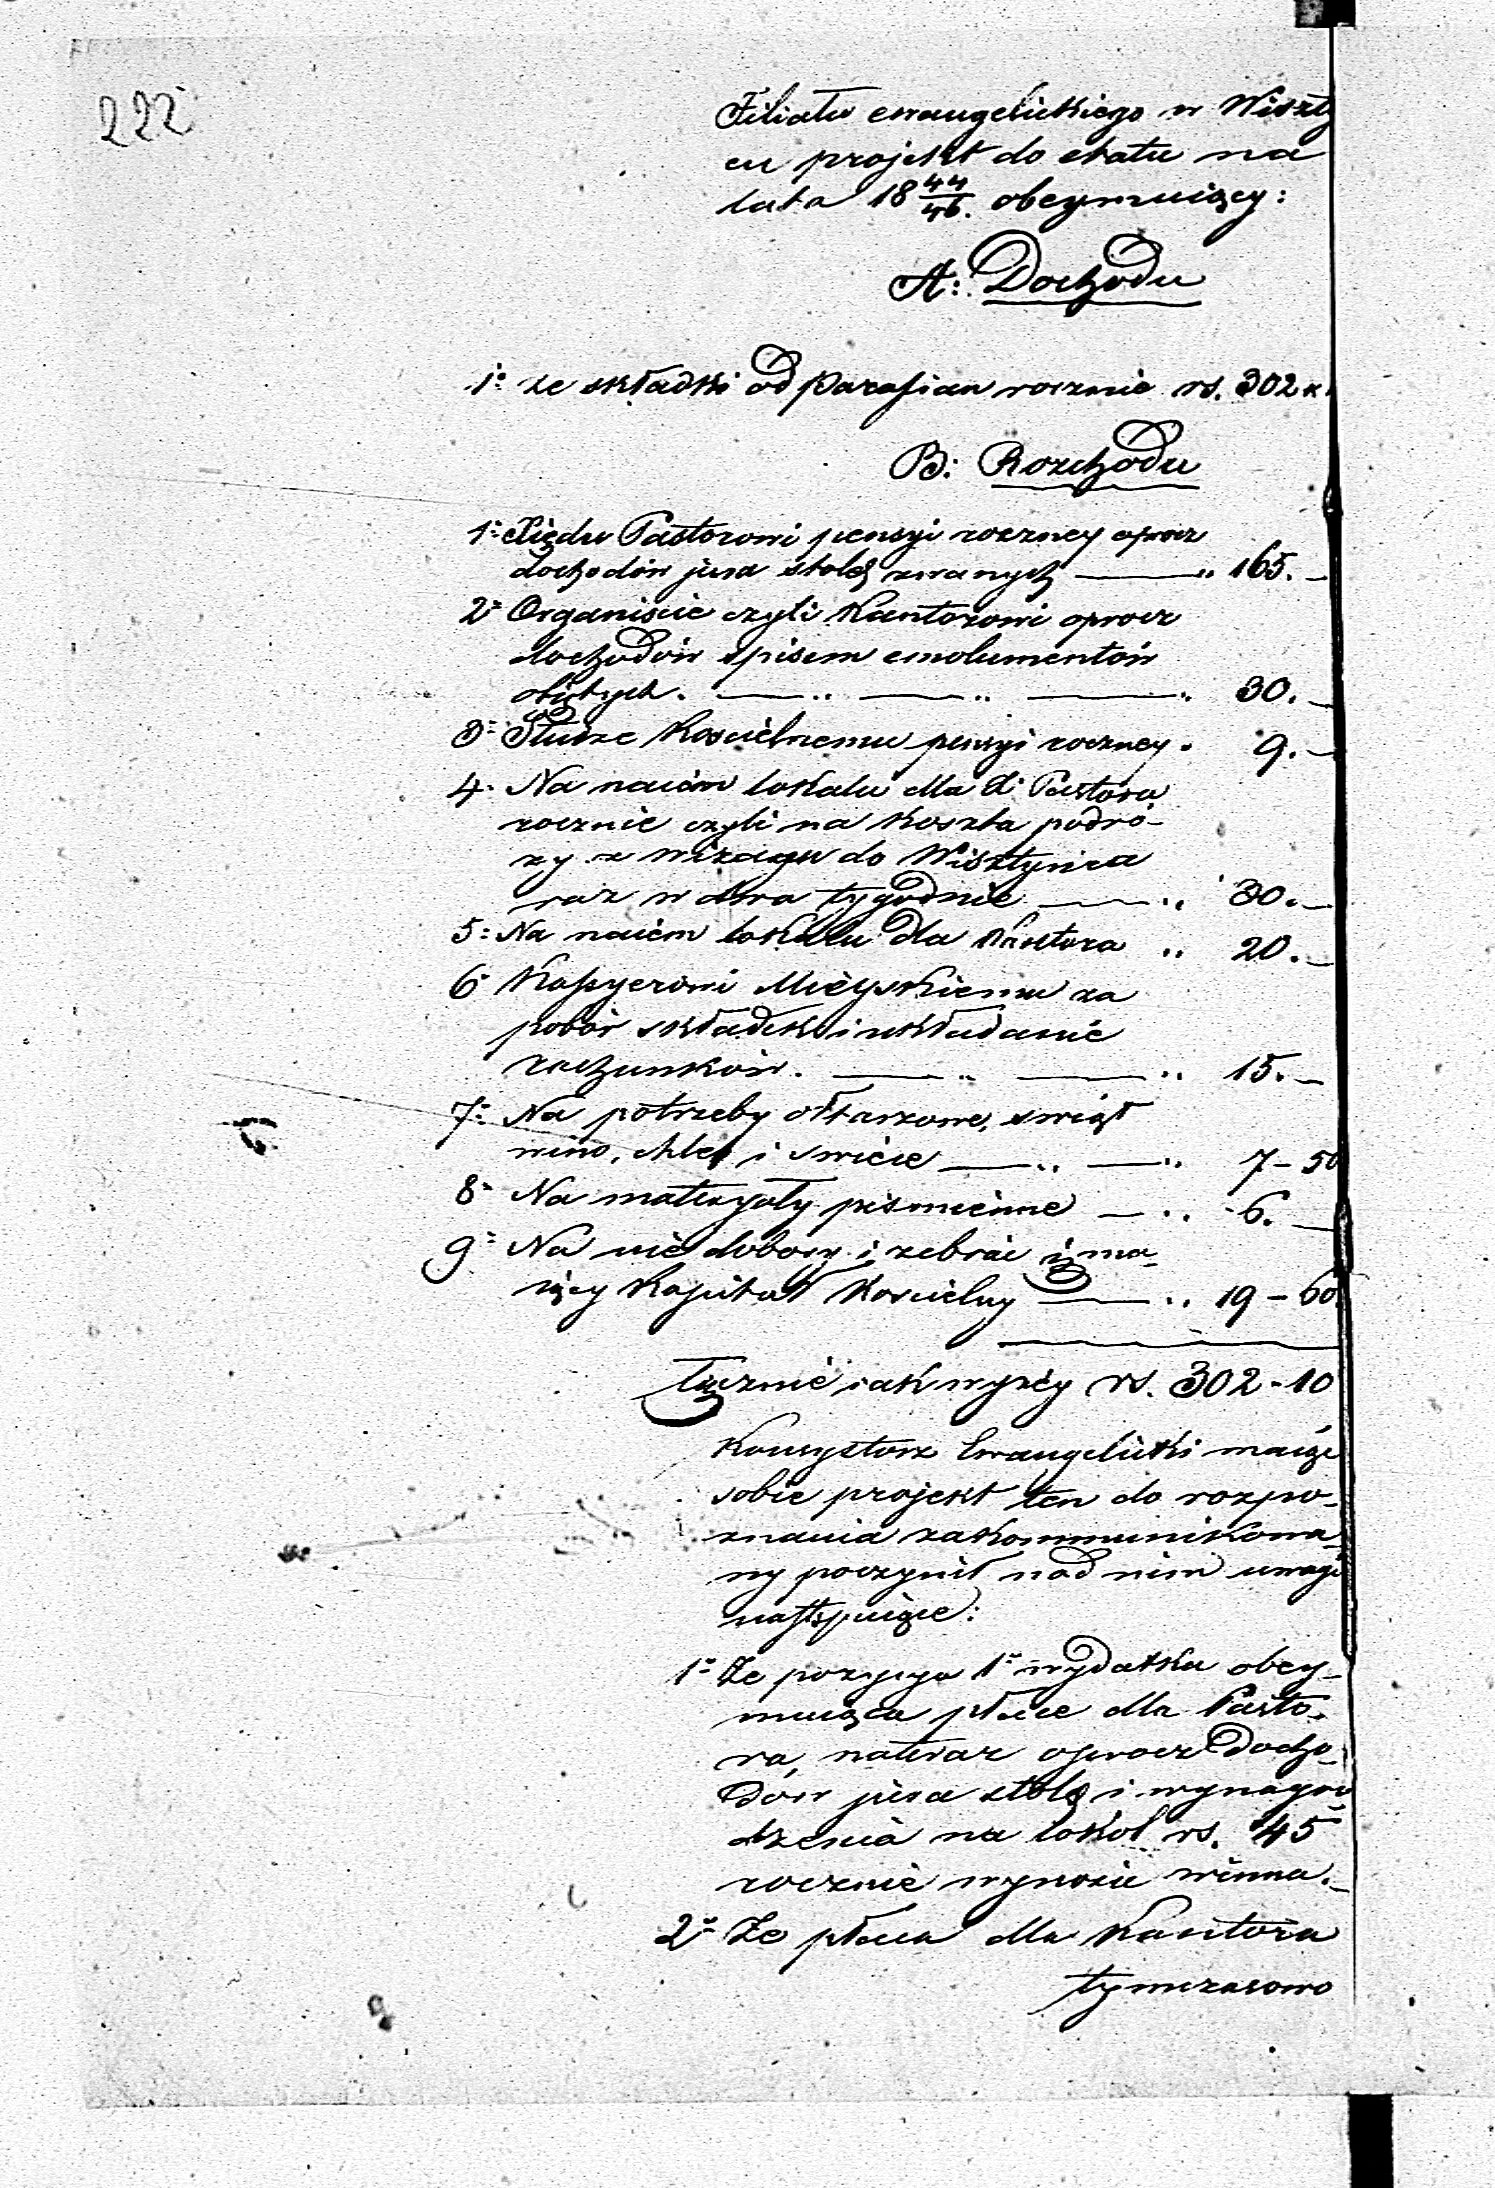 222
Filiału ewangelickiego w Wiszty
cu projekt do etatu na
lata 18 44/46. obeymuiący:
A: Dochodu
1° ze składki od Parafian rocznie rs. 302 k
B: Rozchodu
1° Xiędzu Pastorowi pensyi roczney oprocz
dochodów jura stolæ zwanych — „ 165. —
2° Organiscie czyli Kantorowi oprocz
dochodów spisem emolumentów
obiętych. — „ — „ — „ 30. —
3° Słudze Koscielnemu pensyi roczney „ 9. —
4° Na naiem lokalu dla X. Pastora
rocznie czyli na koszta podró-
zy z do Wisztynca
raz w dwa tygodnie — „ 30. —
5° Na naiem lokalu dla Kantora „ 20. —
6° Kassyerowi Mieyskiemu za
pobór składek i układanie
rachunków. — „ — „ 15. —
7° Na potrzeby ołtarzowe,
wino, chleb i swiece — „ — „ 7 – 50
8° Na materyały pismienne — „ 6. —
9° Na nie dobory i zebrać się ma-
iący Kapitał Koscielny — „ 19 – 60
Łącznie iak wyżéy rs. 302 - 10
Konsystorz Ewangelicki maiąc
sobie projekt ten do rozpo-
znania zakommunikowa-
ny poczynił nad nim uwagi
następuiące:
1° Że pozycya 1° wydatku obey-
muiąca płace dla Pasto-
ra, oprocz docho-
dów jura stolæ i wynagro
dzenia na lokal rs. 45
rocznie wynosic winna. —
2° Że płaca dla Kantora
tymczasowo